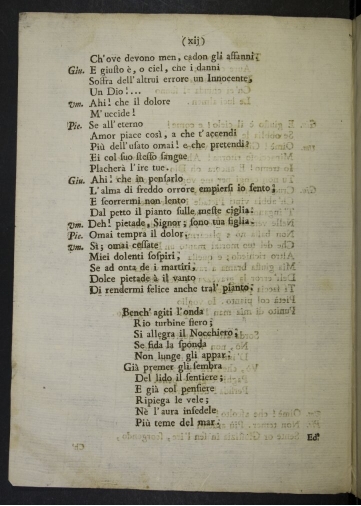 (xij)
Ch'ove devono men, cadon gli affanni;
Giu. E giusto è, o ciel, che i danni
Soffra dell'altrui errore un Innocente,
Un Dio!...
Um. Ahi! che il dolore
M'uccide!
Pie. Se all'eterno
Amor piace così, a che t'accendi
Più dell'usato omai! e che pretendi?
Ei col suo stesso sangue
Placherà l'ire tue.
Giu. Ahi! che in pensarlo
L'alma di freddo orrore empiersi io sento;
E scorrermi non lento
Dal petto il pianto sulle meste ciglia.
Um. Deh! pietade, Signor; sono tua figlia.
Pie. Omai tempra il dolor,
Um. Sì; omai cessate
Miei dolenti sospiri;
Se ad onta de i martiri,
Dolce pietade à il vanto
Di rendermi felice anche tral' pianto.
Bench' agiti l'onda
Rio turbine fiero;
Si allegra il Nocchiero,
Se fida la sponda
Non lunge gli appar.
Già premer gli sembra
Del lido il sentiere;
E già col pensiere
Ripiega le vele;
Nè l'aura infedele
Più teme del mar.
Ed